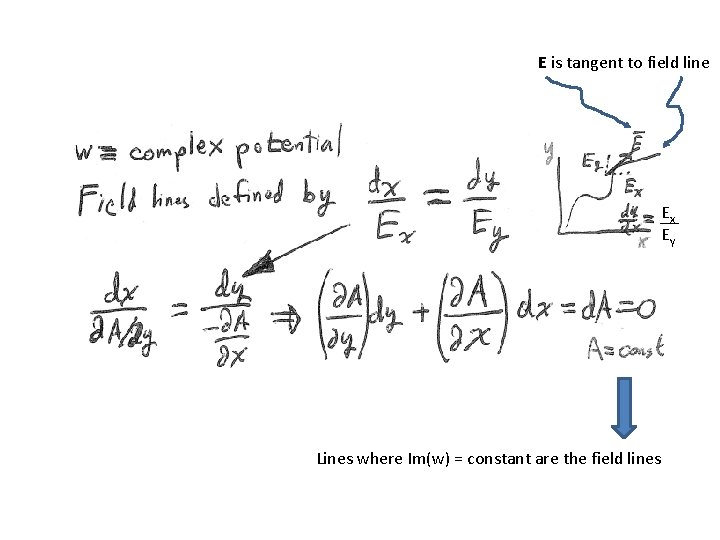 E is tangent to field line
w ≡ complex potential
Field lines defined by dx/E_x = dy/E_y
y E_y Ē
E_x
dy/dx = E_x/E_y
x
dx/(∂A/∂y) = dy/(-∂A/∂x) ⇒ (∂A/∂y)dy + (∂A/∂x)dx = dA = 0
A = const
Lines where Im(w) = constant are the field lines